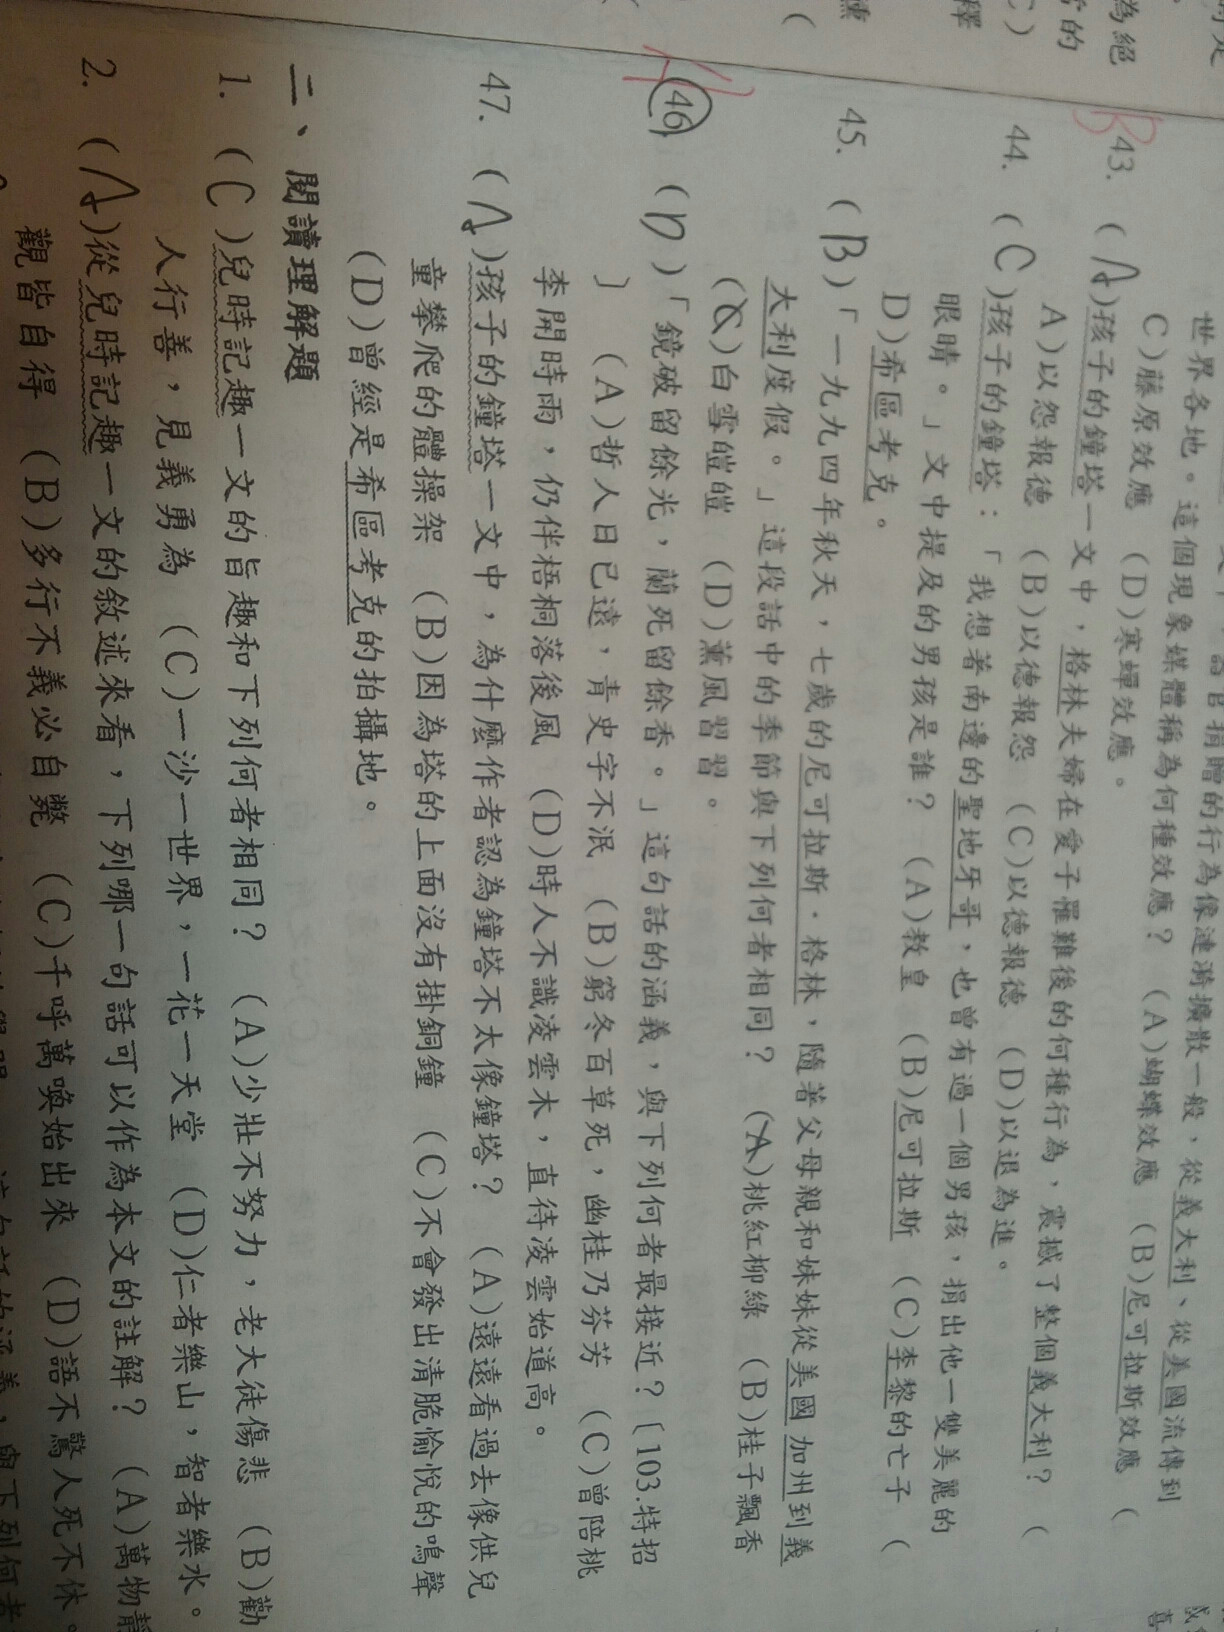 世界各地。這個現象媒體稱為何種效應？（A)蝴蝶效應 （B)尼可拉斯效應 （
C)藤原效應 （D)寒蟬效應。
43. （A)孩子的鐘塔一文中，格林夫婦在愛子罹難後的何種行為，震撼了整個義大利？（
A)以怨報德 （B)以德報怨 （C)以德報德 （D)以退為進。
44. （C)孩子的鐘塔：「我想著南邊的聖地牙哥，也曾有過一個男孩，捐出他一雙美麗的
眼睛。」文中提及的男孩是誰？（A)教皇 （B)尼可拉斯 （C)李黎的亡子 （
D)希區考克。
45. （B)「一九九四年秋天，七歲的尼可拉斯．格林，隨著父母親和妹妹從美國加州到義
大利度假。」這段話中的季節與下列何者相同？（A)桃紅柳綠 （B)桂子飄香
（C)白雪皚皚 （D)薰風習習。
46 （D)「鏡破留餘光，蘭死留餘香。」這句話的涵義，與下列何者最接近？〔103.特招
〕 （A)哲人日已遠，青史字不泯 （B)窮冬百草死，幽桂乃芬芳 （C)曾陪桃
李開時雨，仍伴梧桐落後風 （D)時人不識凌雲木，直待凌雲始道高。
47. （A)孩子的鐘塔一文中，為什麼作者認為鐘塔不太像鐘塔？（A)遠遠看過去像供兒
童攀爬的體操架 （B)因為塔的上面沒有掛銅鐘 （C)不會發出清脆愉悅的鳴聲
（D)曾經是希區考克的拍攝地。
二、閱讀理解題
1. （C)兒時記趣一文的旨趣和下列何者相同？（A)少壯不努力，老大徒傷悲 （B)勸
人行善，見義勇為 （C)一沙一世界，一花一天堂 （D)仁者樂山，智者樂水。
2. （A)從兒時記趣一文的敘述來看，下列哪一句話可以作為本文的註解？（A)萬物靜
觀皆自得 （B)多行不義必自斃 （C)千呼萬喚始出來 （D)語不驚人死不休。